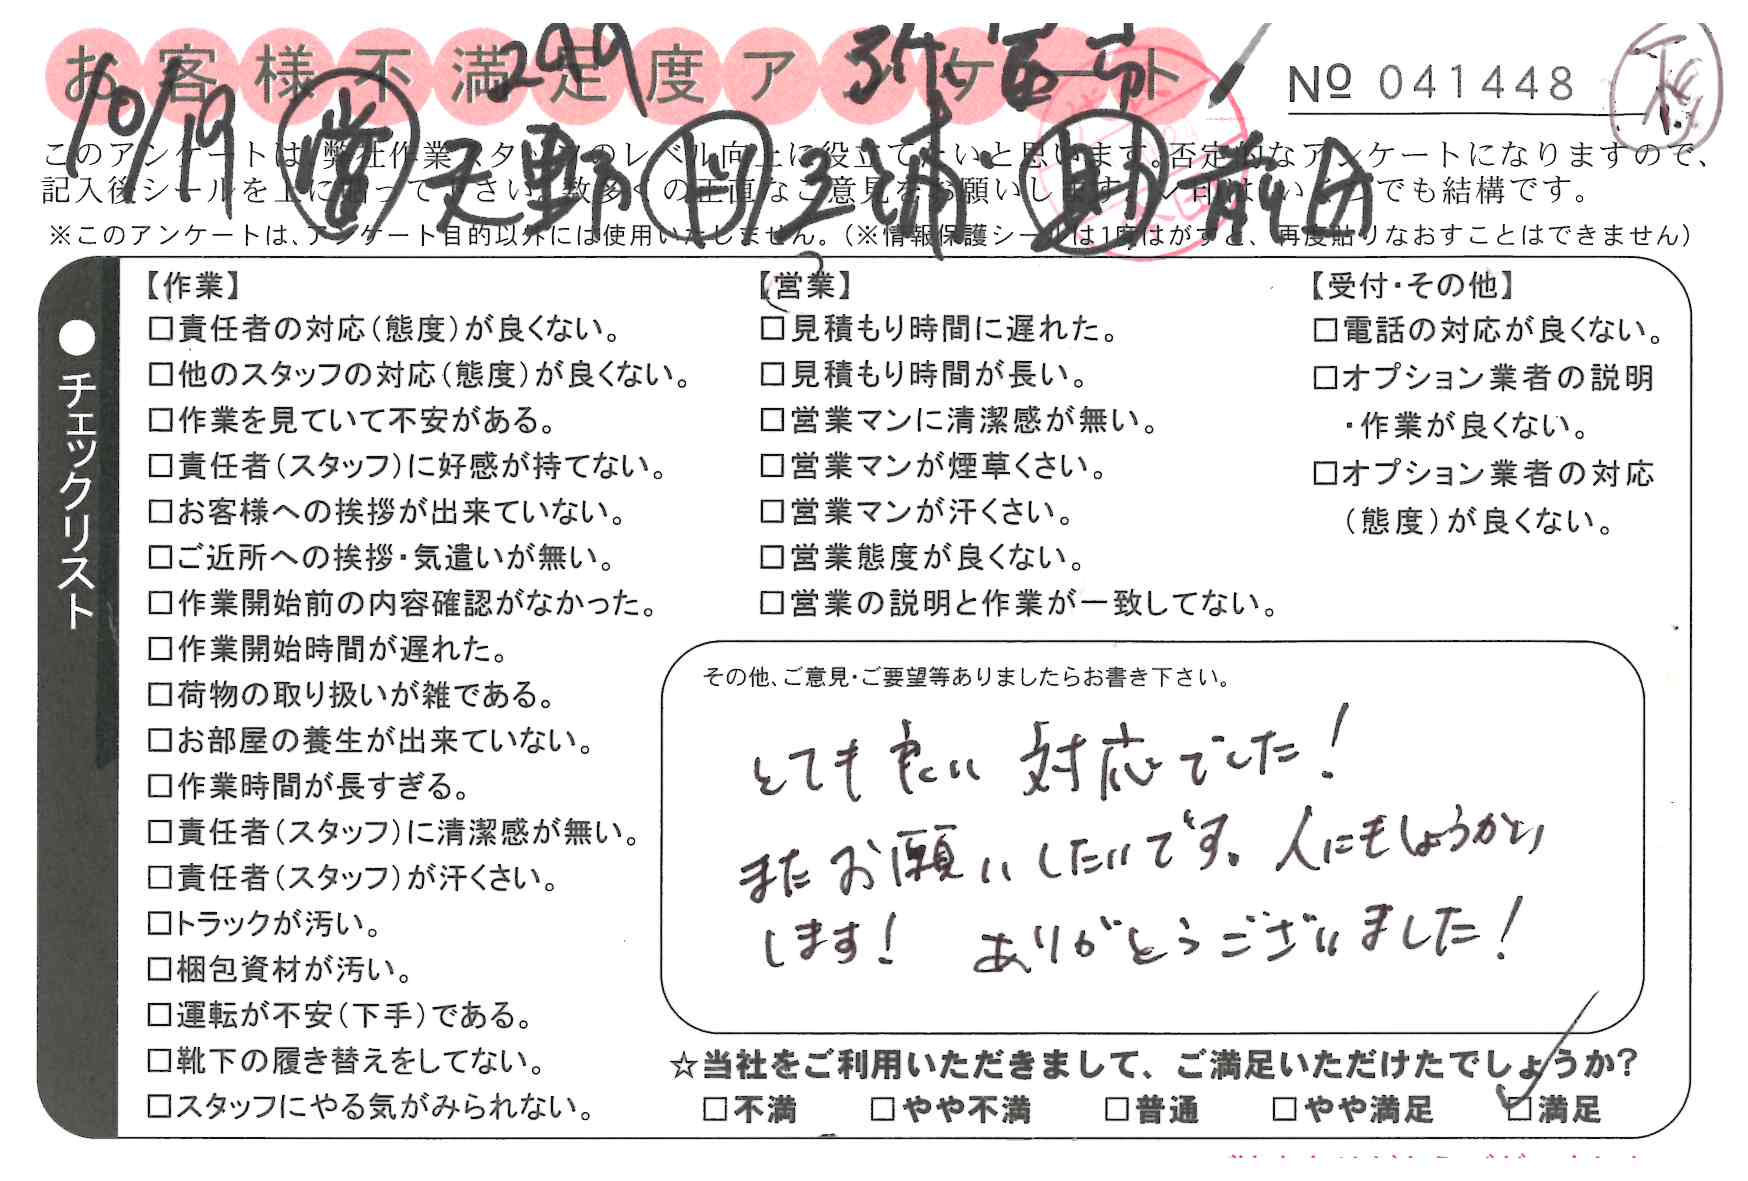 お客様不満足度アンケート
№ 041448
10/19 営 天野 三浦 助 前田
このアンケートは、弊社作業スタッフのレベル向上に役立てたいと思います。否定的なアンケートになりますので、
記入後シールを上に貼って下さい。数多くの正直なご意見をお願いします。
※このアンケートは、アンケート目的以外には使用いたしません。(※情報保護シールは1度はがすと、再度貼りなおすことはできません)
●チェックリスト
【作業】
□責任者の対応(態度)が良くない。
□他のスタッフの対応(態度)が良くない。
□作業を見ていて不安がある。
□責任者(スタッフ)に好感が持てない。
□お客様への挨拶が出来ていない。
□ご近所への挨拶・気遣いが無い。
□作業開始前の内容確認がなかった。
□作業開始時間が遅れた。
□荷物の取り扱いが雑である。
□お部屋の養生が出来ていない。
□作業時間が長すぎる。
□責任者(スタッフ)に清潔感が無い。
□責任者(スタッフ)が汗くさい。
□トラックが汚い。
□梱包資材が汚い。
□運転が不安(下手)である。
□靴下の履き替えをしてない。
□スタッフにやる気がみられない。
【営業】
□見積もり時間に遅れた。
□見積もり時間が長い。
□営業マンに清潔感が無い。
□営業マンが煙草くさい。
□営業マンが汗くさい。
□営業態度が良くない。
□営業の説明と作業が一致してない。
【受付・その他】
□電話の対応が良くない。
□オプション業者の説明
・作業が良くない。
□オプション業者の対応
(態度)が良くない。
その他、ご意見・ご要望等ありましたらお書き下さい。
とても良い対応でした!
またお願いしたいです。人にもしょうかい
します! ありがとうございました!
☆当社をご利用いただきまして、ご満足いただけたでしょうか?
□不満 □やや不満 □普通 □やや満足 ☑満足